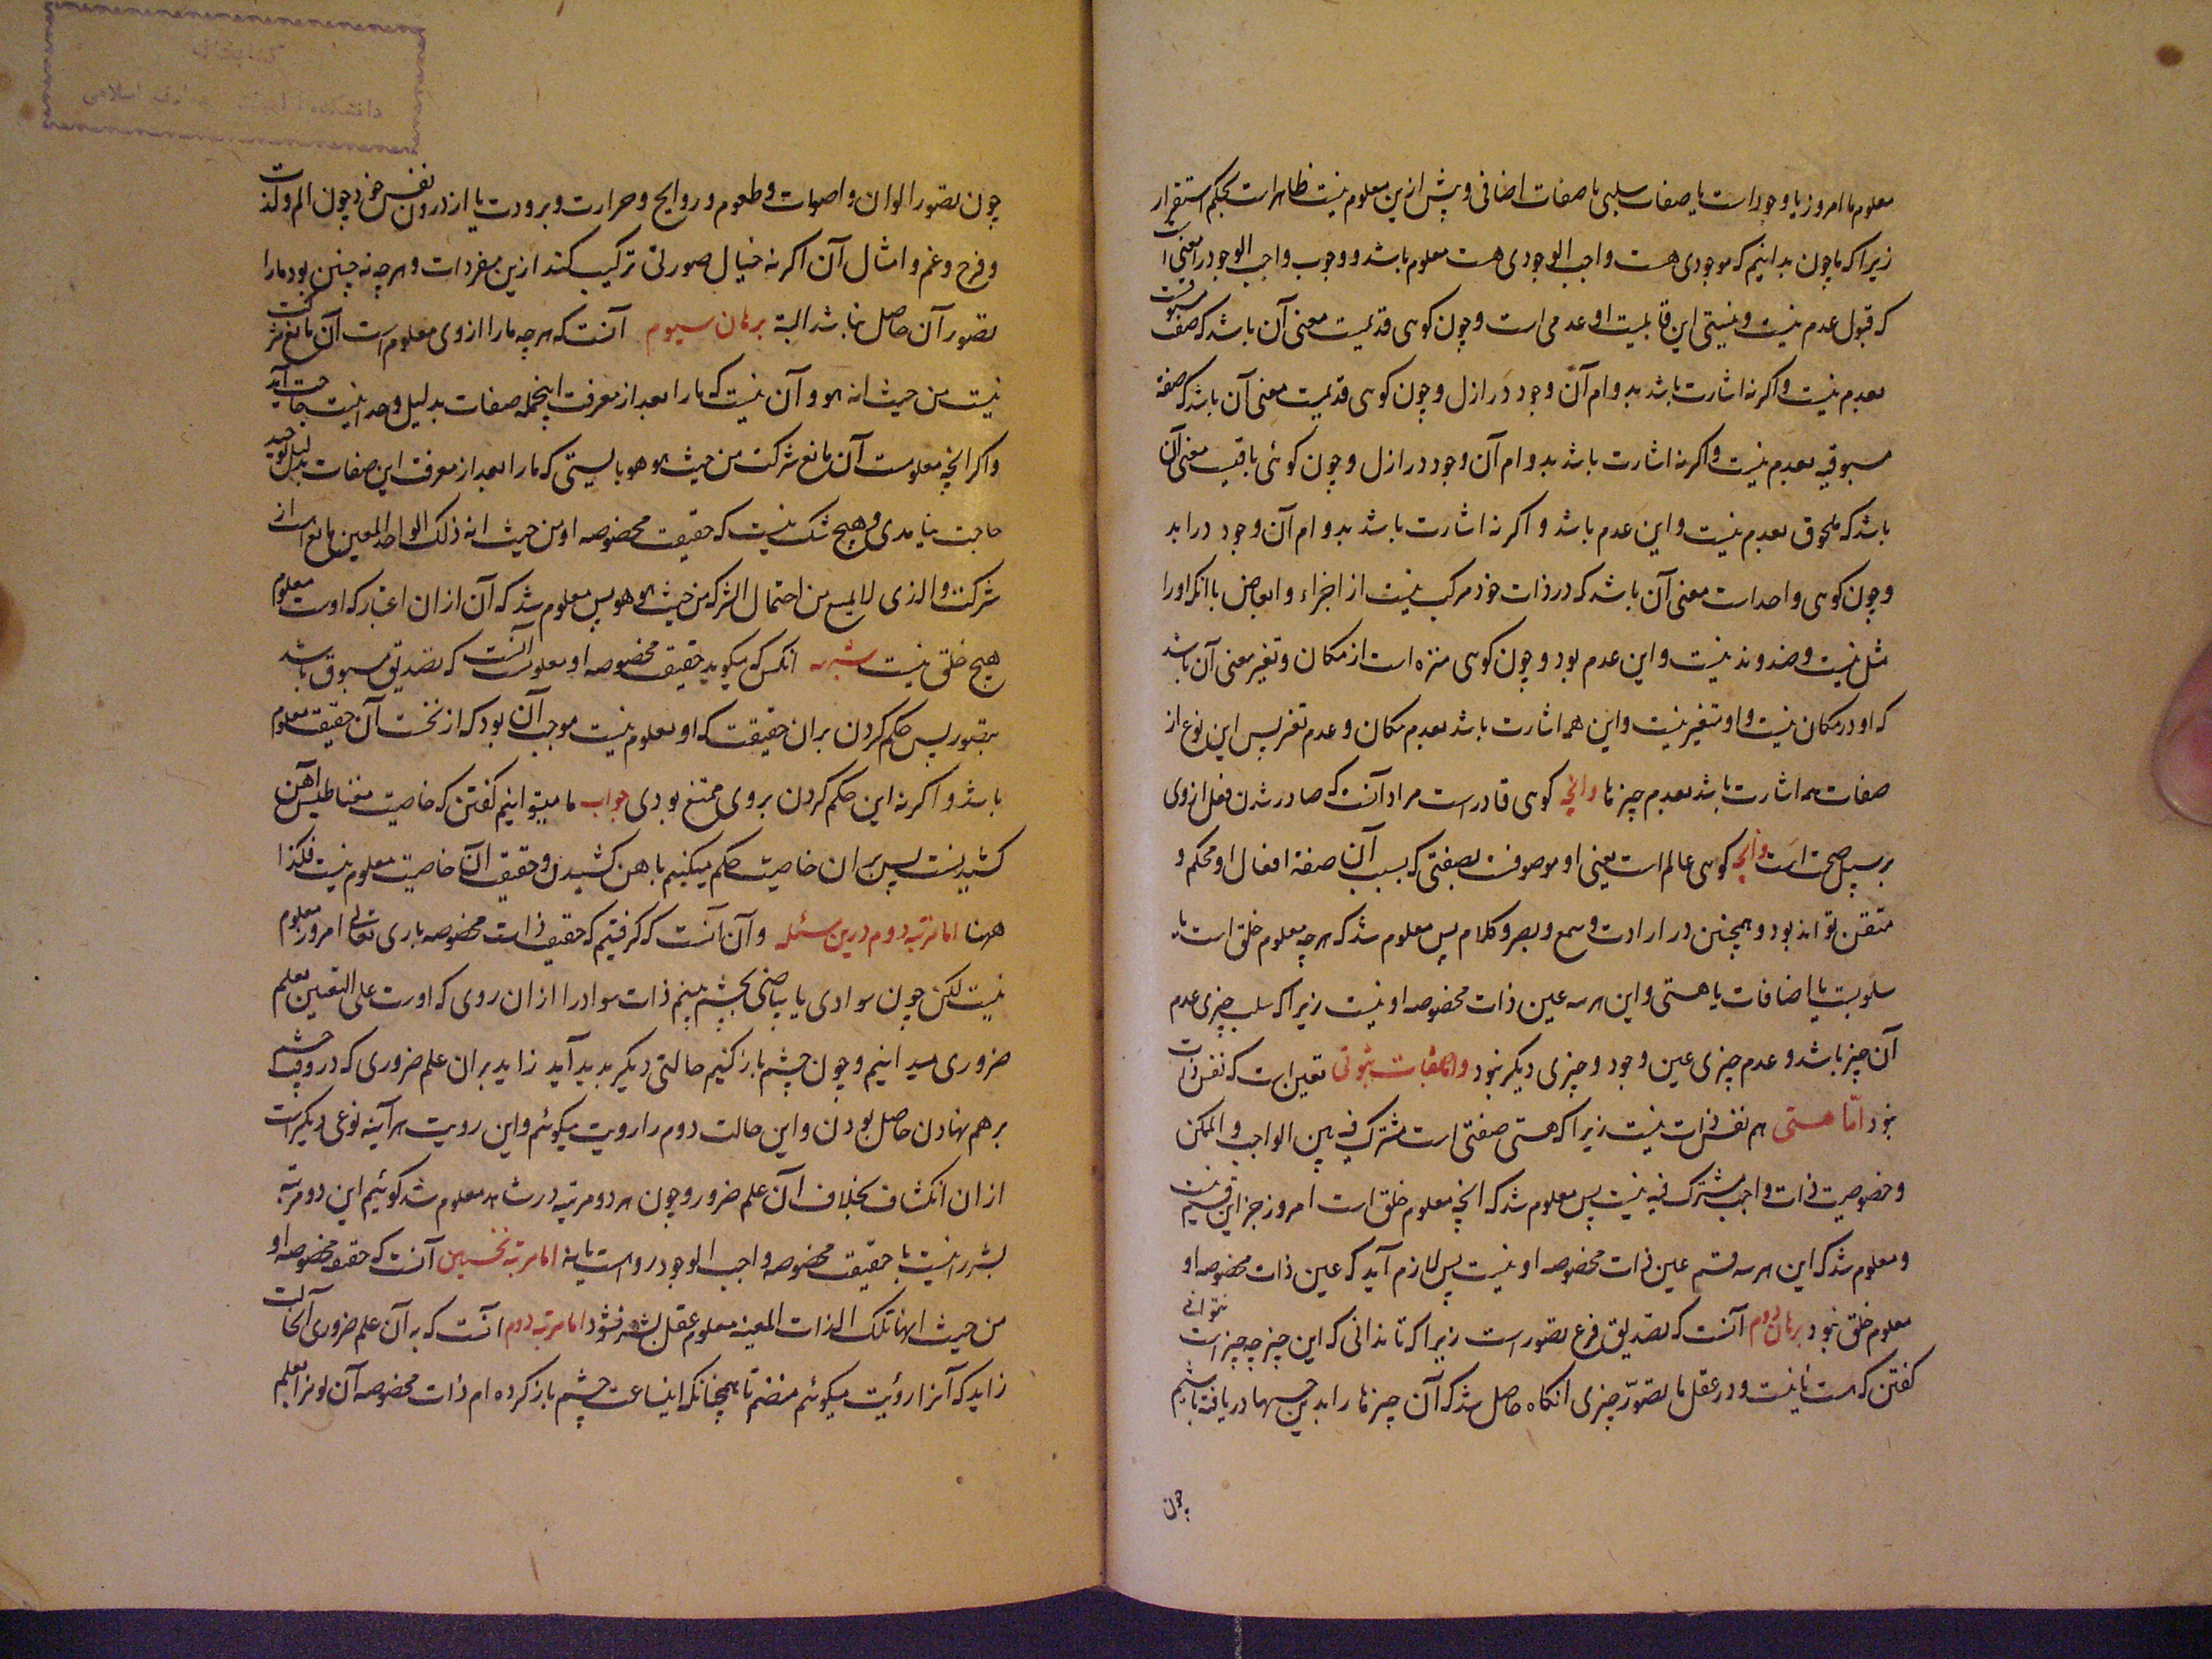 معلوم ما امروز یا وجود است یا صفات سلبی یا صفات اضافی و پیش ازین معلوم نیست ظاهر است بحکم استقرار
زیرا که ما چون بدانیم که موجودی هست واجب الوجودی هست معلوم باشد و وجوب واجب الوجود را معنی
که قبول عدم نیست و نیستی این قابلیت او عدمی است و چون کوئی قدیمست معنی آن باشد که مسبوقست
بعدم نیست و اکر نه اشارت باشد بدوام آن وجود در ازل و چون کوئی قدیمست معنی آن باشد که صفة
مسبوقیه بعدم نیست و اکر نه اشارت باشد بدوام آن وجود در ازل و چون کوئی باقیست معنی آن
باشد که ملحوق بعدم نیست و این عدم باشد و اکر نه اشارت باشد بدوام آن وجود در ابد
و چون کوئی واحد است معنی آن باشد که در ذات خود مرکب نیست از اجزاء و ابعاض با آنکه او را
مثل نیست و ضد و ند نیست و این عدم بود و چون کوئی منزه است از مکان و تغیر معنی آن باشد
که او در مکان نیست و او متغیر نیست و این همه اشارت باشد بعدم مکان و عدم تغیر پس این نوع از
صفات همه اشارت باشد بعدم چیزها و انچه کوئی قادرست مراد آنست که صادر شدن فعل از وی
بر سبیل صحت است و انچه کوئی عالم است یعنی او موصوفست بصفتی که بسبب آن صفة افعال او محکم و
متقن تواند بود و همچنین در ارادت و سمع و بصر و کلام پس معلوم شد که هرچه معلوم خلق است یا
سلوبست یا اضافات یا هستی و این هر سه عین ذات مخصوصه او نیست زیرا که سلب چیزی عدم
آن چیز باشد و عدم چیزی عین وجود و چیزی دیکر نبود و اما ثبوتی تعین است که نفس ذات
نبود امّا هستی هم نفس ذات نیست زیرا که هستی صفتی است مشترک فیه بین الواجب و الممکن
و خصوصیت ذات واجب مشترک فیه نیست پس معلوم شد که انچه معلوم خلق است امروز جز این قسم نیست
و معلوم شد که این هر سه قسم عین ذات مخصوصه او نیست پس لازم آید که عین ذات مخصوصه او
معلوم خلق نبود برهان دوم آنست که تصدیق فرع تصور است زیرا که تا ندانی که این چیز چه چیز است نتوانی
کفتن که هست یا نیست و در عقل ما تصوّر چیزی انکاه حاصل شد که آن چیزها را بدین حسها دریافته باشیم
چون
چون تصور الوان و اصوات و طعوم و روایح و حرارت و برودت یا از درون نفس خود چون الم و لذت
و فرح و غم و امثال آن اکر نه خیال صورتی ترکیب کند ازین مفردات و هرچه نه چنین بود ما را
تصور آن حاصل نباشد البتة برهان سیوم آنست که هرچه ما را از وی معلوم است آن مانع شرکت
نیست من حیث انه هو و آن نیست که ما را بعد از معرفت اینجمله صفات بدلیل وحدانیت حاجت آید
و اکر انچه معلومست آن مانع شرکت من حیث هو هو بایستی که ما را بعد از معرفت این صفات بدلیل توحید
حاجت نیامدی و هیچ شک نیست که حقیقت مخصوصه او من حیث انه ذلک الواحد المعین مانع است از
شرکت و الذی لا یمنع من احتمال الشرکه من حیث هو هو پس معلوم شد که آن از ان اعتبار که اوست معلوم
هیچ خلق نیست شبهه انکس که میکوید حقیقت مخصوصه او معلومست آنست که تصدیق مسبوق باشد
بتصور پس حکم کردن بر ان حقیقت که او معلوم نیست موجب آن بود که از نخست آن حقیقت معلوم
باشد و اکر نه این حکم کردن بر وی ممتنع بودی جواب ما میتوانیم کفتن که خاصیت مغناطیس آهن
کشیدنست پس بر ان خاصیت حکم میکنیم باهن کشیدن و حقیقت آن خاصیت معلوم نیست فکذا
ههنا اما مرتبه دوم درین مسئله و آن آنست که کرفتیم که حقیقت ذات مخصوصه باری تعالی امروز معلوم
نیست لکن چون سوادی یا بیاضی بچشم بینیم ذات سواد را از ان روی که اوست علی التعیین بعلم
ضروری میدانیم و چون چشم باز کنیم حالتی دیکر بدید آید زاید بر ان علم ضروری که در وقت چشم
بر هم نهادن حاصل بودن و این حالت دوم را رویت میکوئم و این رویت هر آینه نوعی دیکر است
از ان انکشاف بخلاف آن علم ضرور و چون هر دو مرتبه در شاهد معلوم شد کوئیم این دو مرتبه
بشر را نسبت با حقیقت مخصوصه واجب الوجود رواست یا نه اما مرتبه نخستین آنست که حقیقت مخصوصه او
من حیث انها تلک الذات المعینه معلوم عقل بشر نشود اما مرتبه دوم آنست که به آن علم ضروری آن حالت
زاید که آنرا رؤیت میکوئم منضم تا همچنانکه اینساعت چشم باز کرده ام ذات مخصوصه آن لون را بعلم